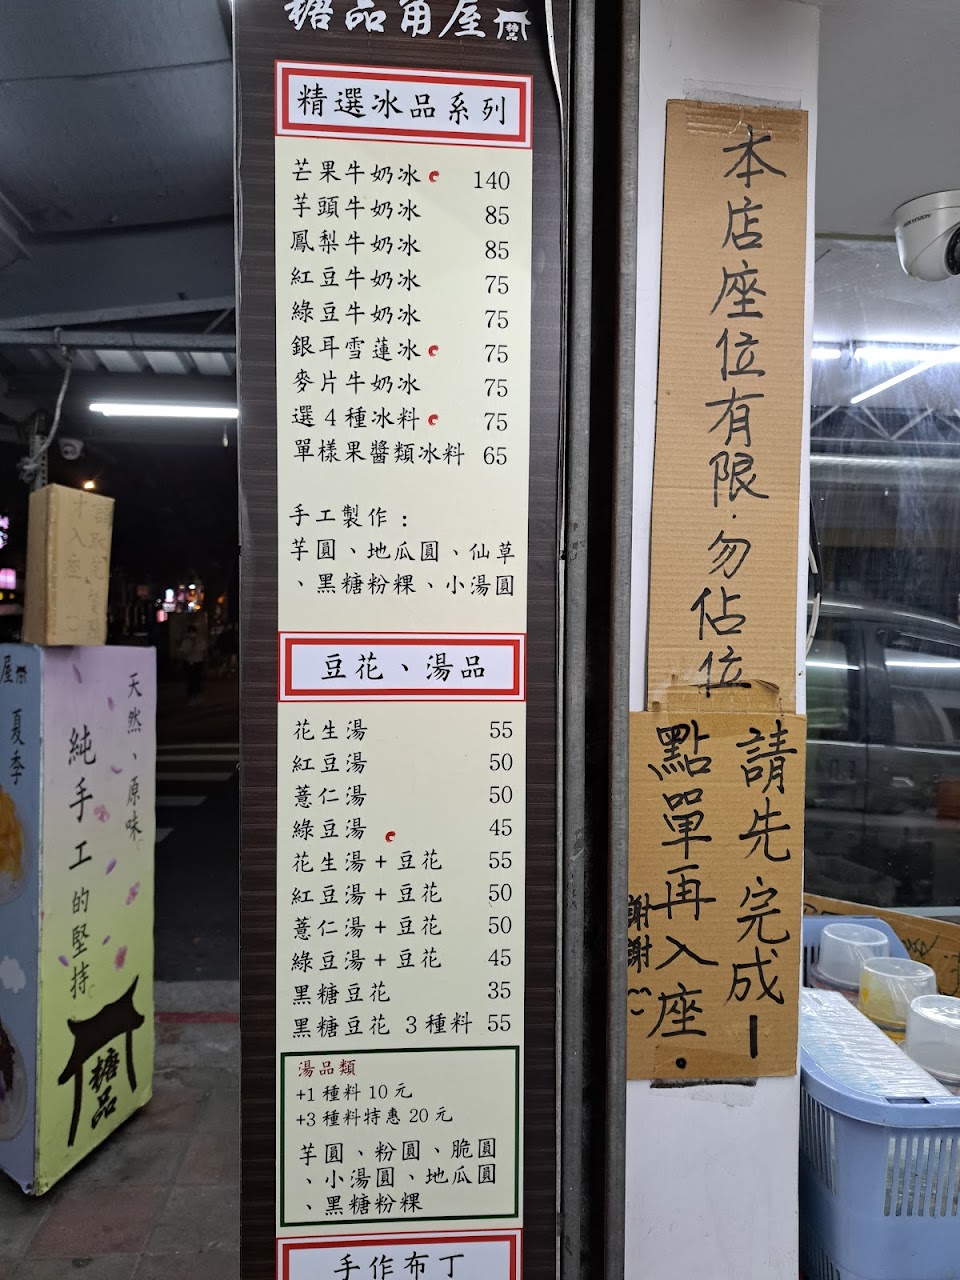 糖品角屋
糖品
精選冰品系列
芒果牛奶冰 140
芋頭牛奶冰 85
鳳梨牛奶冰 85
紅豆牛奶冰 75
綠豆牛奶冰 75
銀耳雪蓮冰 75
麥片牛奶冰 75
選4種冰料 75
單樣果醬類冰料 65
手工製作：
芋圓、地瓜圓、仙草
、黑糖粉粿、小湯圓
豆花、湯品
花生湯 55
紅豆湯 50
薏仁湯 50
綠豆湯 45
花生湯+豆花 55
紅豆湯+豆花 50
薏仁湯+豆花 50
綠豆湯+豆花 45
黑糖豆花 35
黑糖豆花 3種料 55
湯品類
+1種料10元
+3種料特惠20元
芋圓、粉圓、脆圓
、小湯圓、地瓜圓
、黑糖粉粿
手作布丁
本店座位有限·勿佔位
請先完成
點單再入座.
謝謝
HIKVISION
天然、原味
純手工的堅持
糖品
屋
夏季
入座